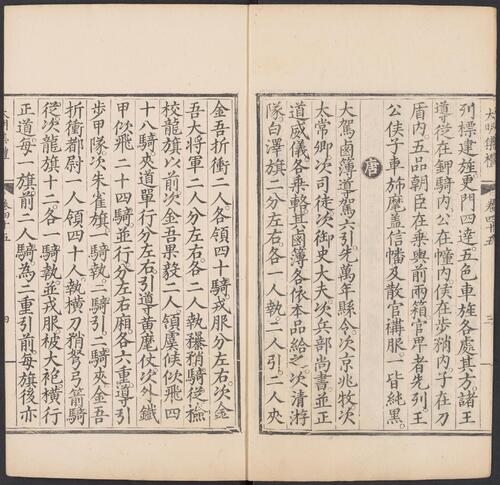 列。標建旌更門四達五色車旌各處其方。諸王
導從在鈒騎内。公在幢内。侯在步矟内。子在刀
盾内。五品朝臣在乗輿前兩箱。官卑者先列。王
公侯子車斾麾蓋信幡及散官構服。一皆純黒。
唐
大駕鹵簿導駕六引。先萬年縣令。次京兆牧。次
太常卿。次司徒。次御史大夫。次兵部尚書。並正
道威儀各乗輅。其鹵簿各依本品給之。次清游
隊。白澤旗二。分左右。各一人執。二人引。二人夾
大明集禮
卷四十五
三
金吾折衝二人。各領四十騎。戎服分左右。次金
吾大将軍二人。分左右。各二人執䂍矟騎從。檢
校龍旗以前。次金吾果毅二人。領虞候佽飛四
十八騎。夾道單行分左右。引導黄麾仗。次外鐵
甲佽飛二十四騎。並行分左右廂。各六重導引
步甲隊。次朱雀旗一。騎執一。騎引。二騎夾。金吾
折衝都尉一人。領四十人執横刀矟弩弓箭騎
從。次龍旗十二。各一騎執。並戎服被大袍。横行
正道。每一旗前二人騎。為二重引前。每旗後亦
卷四十五
四